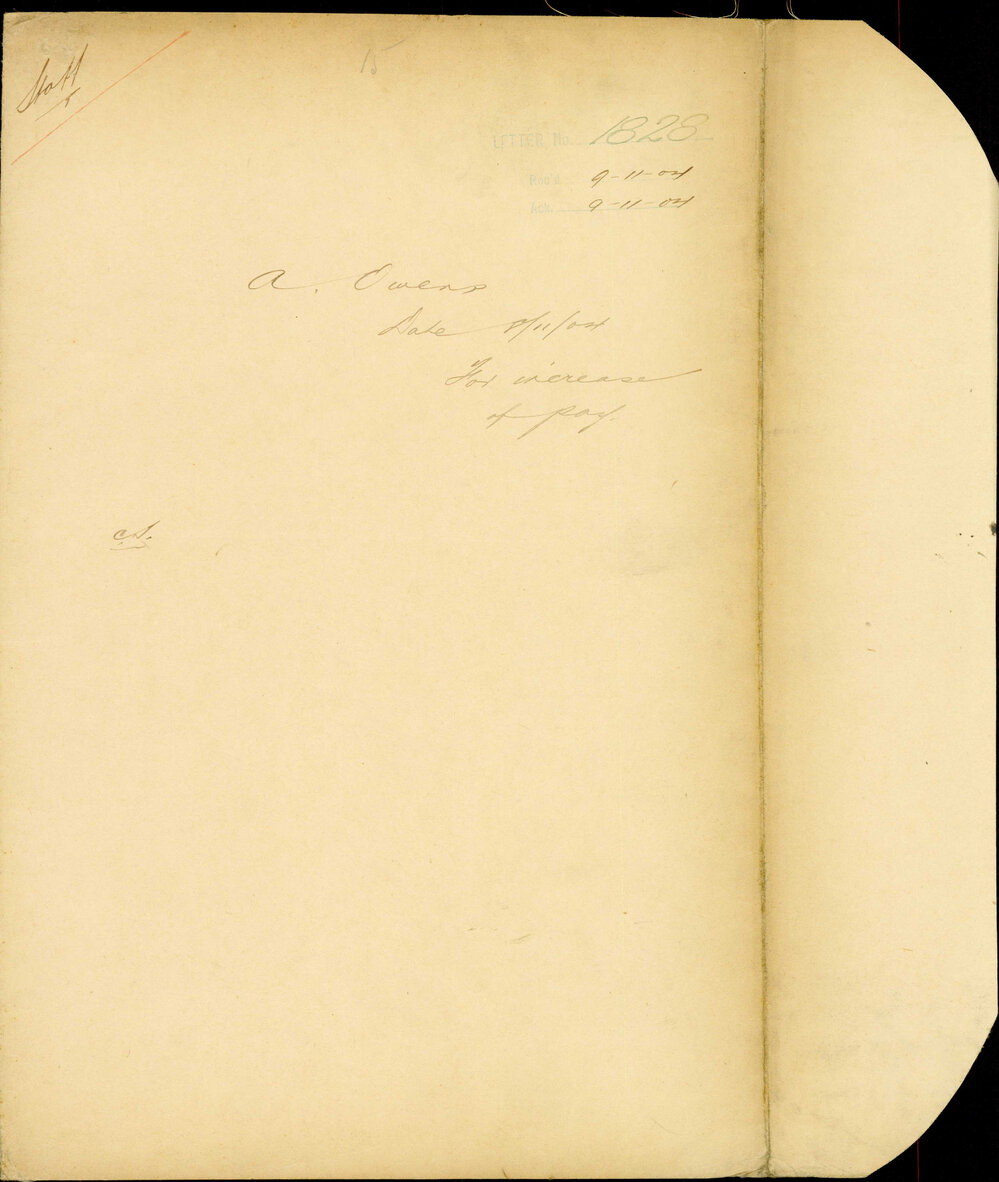 Staff
15
LETTER No. 1828
Rec'd 9-11-04
Ack. 9-11-04
A. Owens
Date 8/11/04
For increase
of pay.